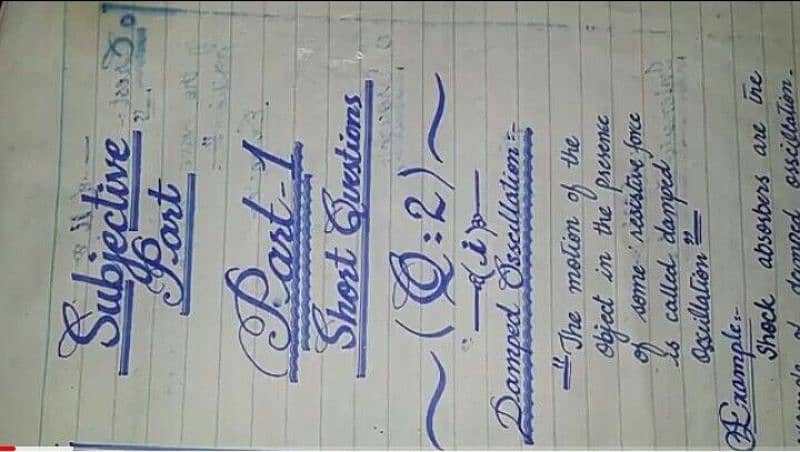 Subjective
Part
Part-1
Short Questions
(Q:2)
(i)
Damped Osscillation:-
"The motion of the
object in the presence
of some resistive force
is called damped
Oscillation"
Example:-
Shock absorbers are the
of damped osscillation.